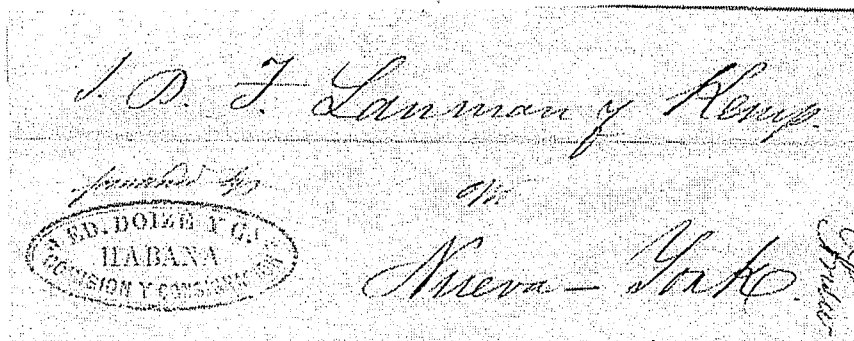 S. D. F. Lanman y Kemp.
forwarded by
ED. DOIZE Y C.A
HABANA
COMISION Y CONSIGNACION
Nueva-York